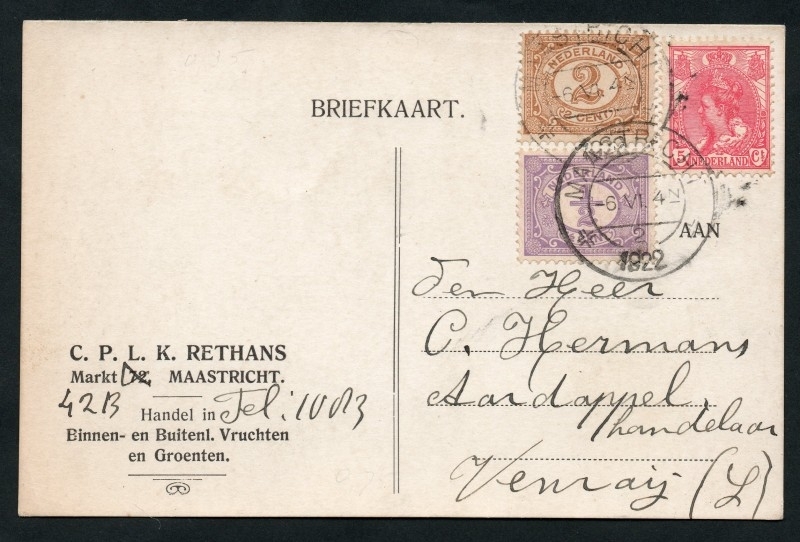 BRIEFKAART.
NEDERLAND
2
2 CENT
-6 VI. 4N
5 Ct
NEDERLAND
MAASTRICHT
-6 VI. 4N
2
1922
AAN
den Heer
C. Hermans
Aardappel
handelaar
Venraij (L)
C. P. L. K. RETHANS
Markt 72, MAASTRICHT.
42B
Handel in Tel: 1003
Binnen- en Buitenl. Vruchten
en Groenten.